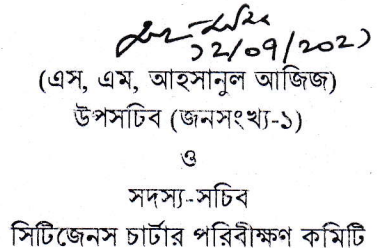 12/09/202১
(এস, এম, আহসানুল আজিজ)
উপসচিব (জনসংখ্যা-১)
ও
সদস্য-সচিব
সিটিজেনস চার্টার পরিবীক্ষণ কমিটি